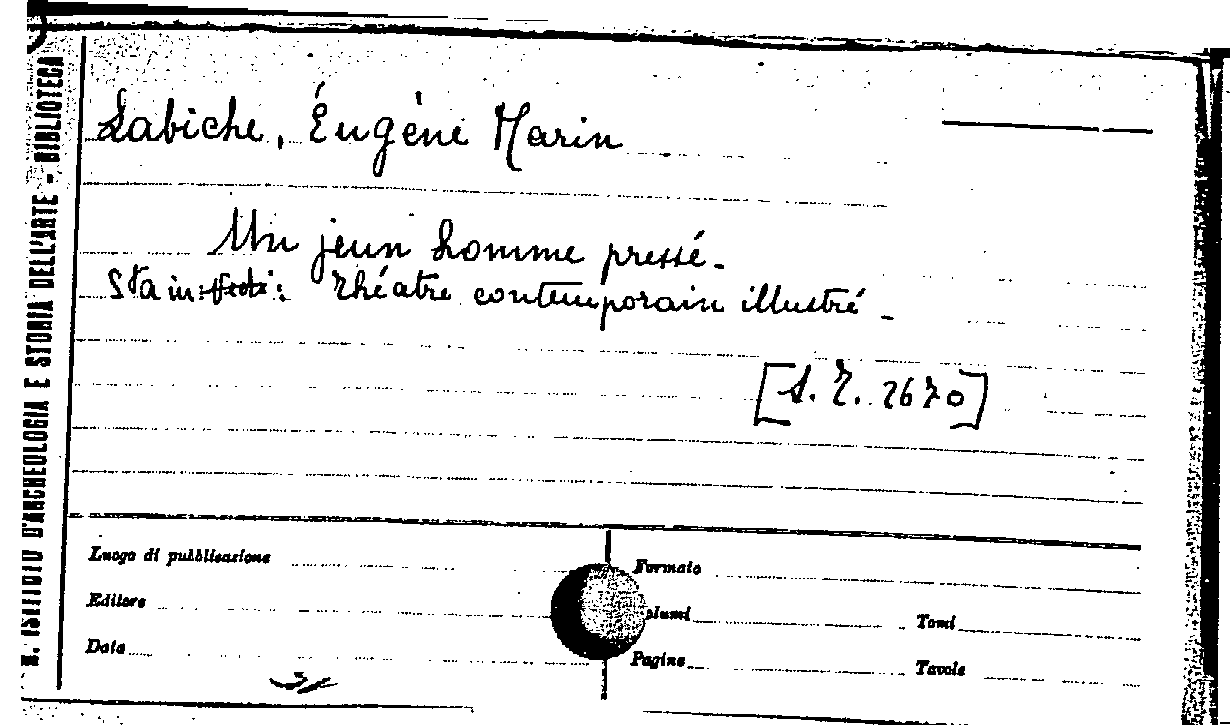 R. ISTITUTO D'ARCHEOLOGIA E STORIA DELL'ARTE - BIBLIOTECA
Labiche, Éugène Marin
Un jeun homme pressé.
Sta in: : Théatre contemporain illustré.
[S. T. 2670]
Luogo di pubblicazione
Formato
Editore
Volumi
Tomi
Data
Pagine
Tavole